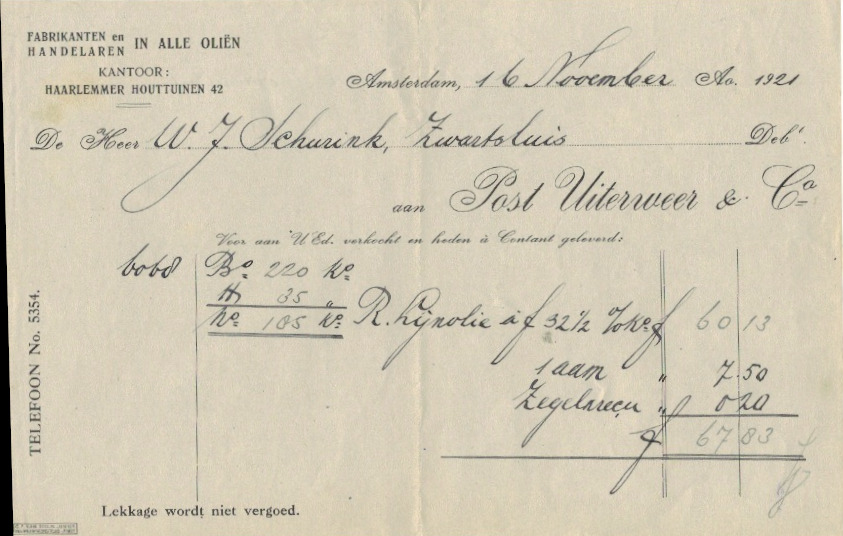 FABRIKANTEN en HANDELAREN IN ALLE OLIËN
KANTOOR:
HAARLEMMER HOUTTUINEN 42
Amsterdam, 16 November Ao. 1921
De Heer W. J. Schurink, Zwartsluis Debr.
aan Post Uiterweer & Co
Voor aan UEd. verkocht en heden à Contant geleverd:
Bo 220 Ko
35 "
No 185 Ko R. Lijnolie à f 32 1/2 % Ko f 60 13
1 aam " 7.50
Zegelsreçu " 0 20
f 67 83
TELEFOON No. 5354.
Lekkage wordt niet vergoed.